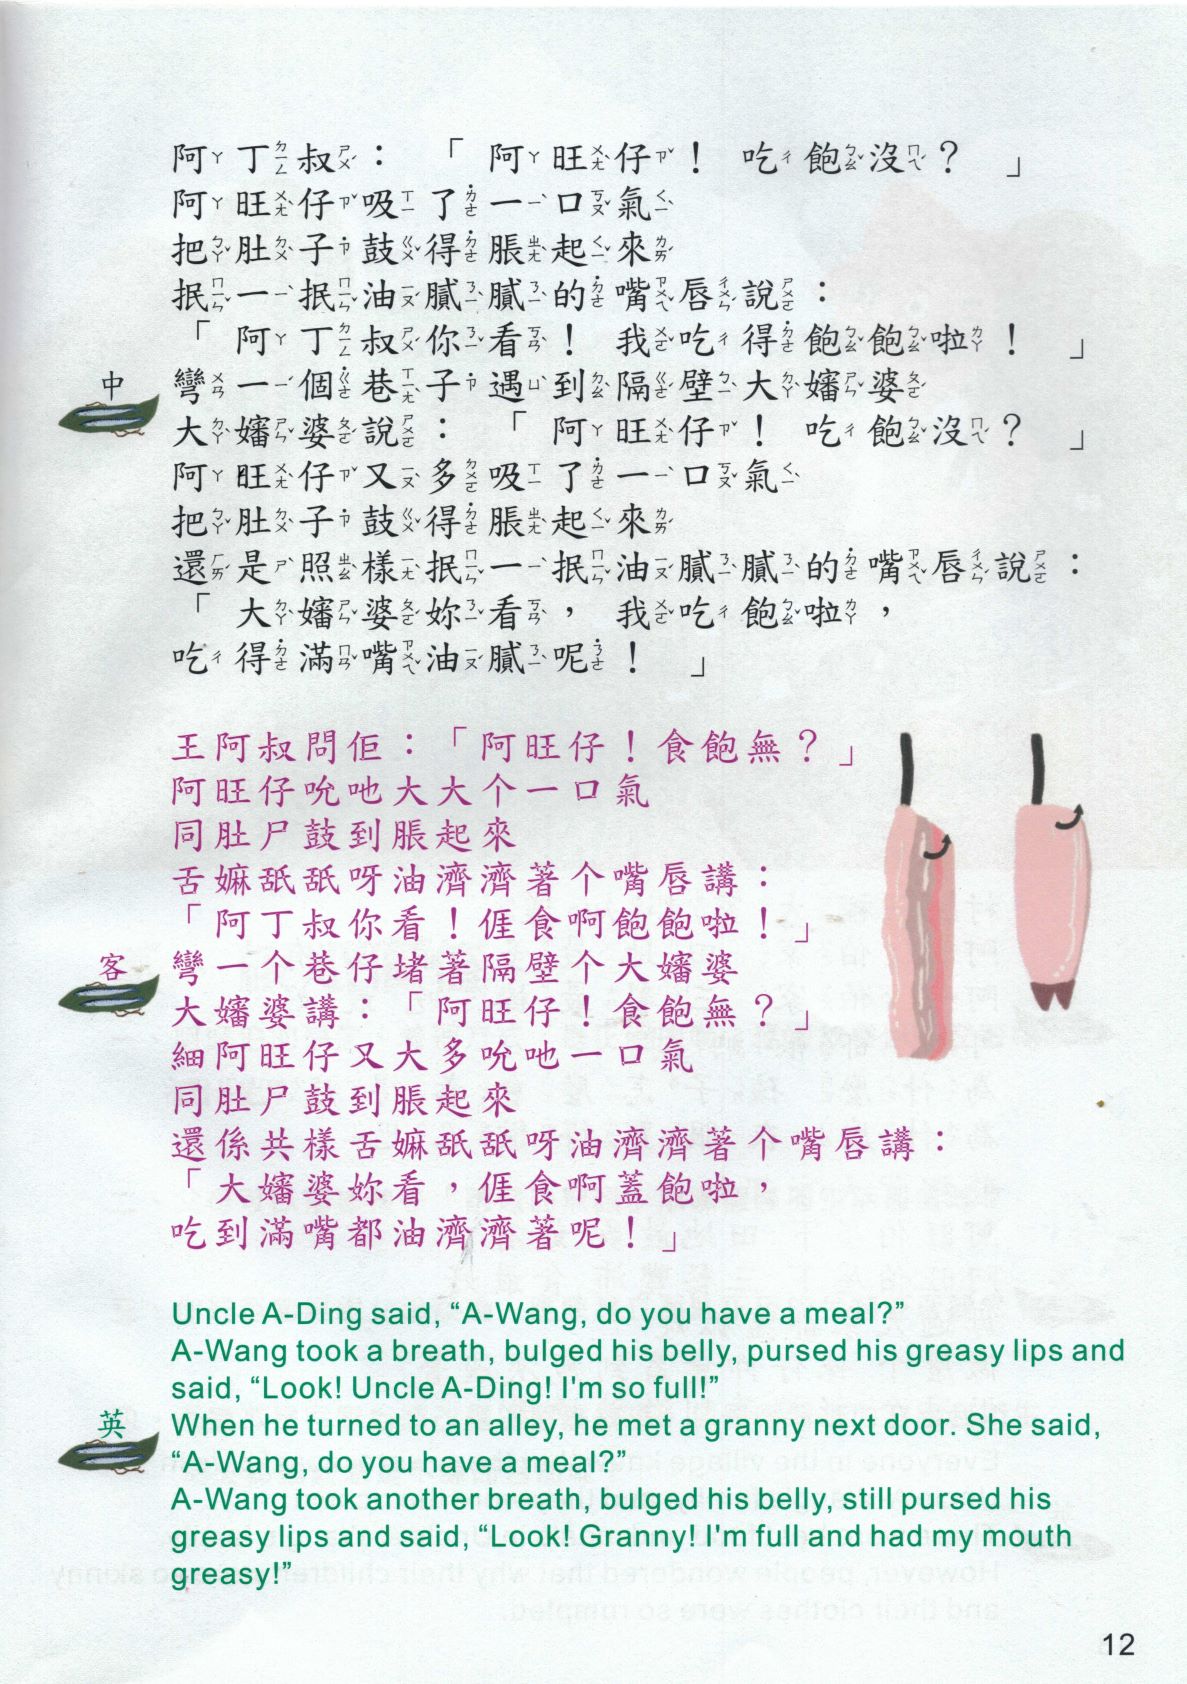 阿丁叔：「阿旺仔！吃飽沒？」
阿旺仔吸了一口氣
把肚子鼓得脹起來
抿一抿油膩膩的嘴唇說：
「阿丁叔你看！我吃得飽飽啦！」
中
彎一個巷子遇到隔壁大嬸婆
大嬸婆說：「阿旺仔！吃飽沒？」
阿旺仔又多吸了一口氣
把肚子鼓得脹起來
還是照樣抿一抿油膩膩的嘴唇說：
「大嬸婆妳看，我吃飽啦，
吃得滿嘴油膩呢！」
王阿叔問佢：「阿旺仔！食飽無？」
阿旺仔吮吔大大个一口氣
同肚尸鼓到脹起來
舌嫲舐舐呀油濟濟著个嘴唇講：
「阿丁叔你看！𠊎食啊飽飽啦！」
客
彎一个巷仔堵著隔壁个大嬸婆
大嬸婆講：「阿旺仔！食飽無？」
細阿旺仔又大多吮吔一口氣
同肚尸鼓到脹起來
還係共樣舌嫲舐舐呀油濟濟著个嘴唇講：
「大嬸婆妳看，𠊎食啊蓋飽啦，
吃到滿嘴都油濟濟著呢！」
Uncle A-Ding said, “A-Wang, do you have a meal?”
A-Wang took a breath, bulged his belly, pursed his greasy lips and
said, “Look! Uncle A-Ding! I'm so full!”
英
When he turned to an alley, he met a granny next door. She said,
“A-Wang, do you have a meal?”
A-Wang took another breath, bulged his belly, still pursed his
greasy lips and said, “Look! Granny! I'm full and had my mouth
greasy!”
12